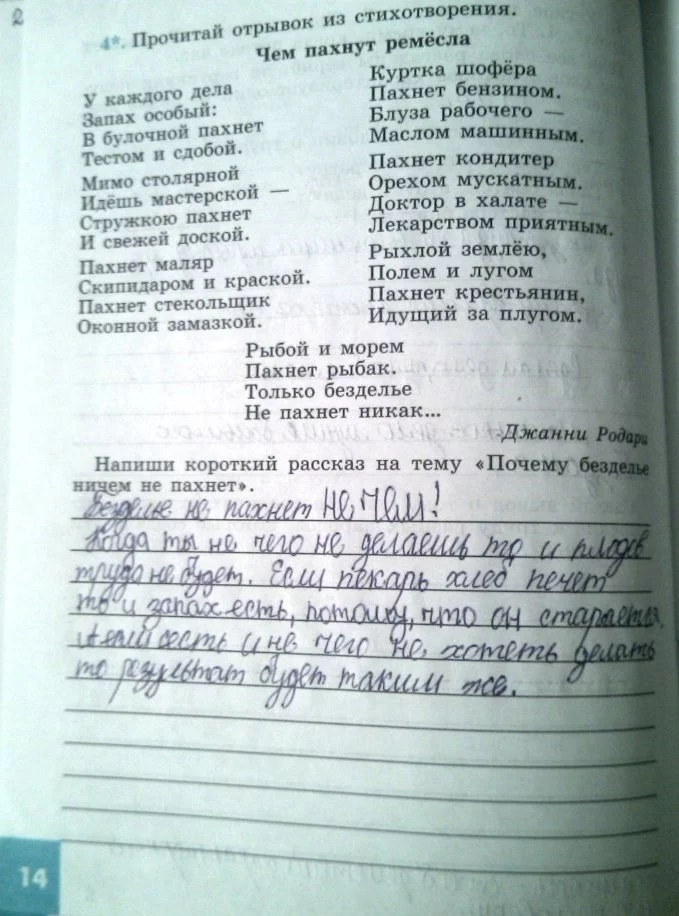 2
4*. Прочитай отрывок из стихотворения.
Чем пахнут ремёсла
У каждого дела
Запах особый:
В булочной пахнет
Тестом и сдобой.
Мимо столярной
Идёшь мастерской —
Стружкою пахнет
И свежей доской.
Пахнет маляр
Скипидаром и краской.
Пахнет стекольщик
Оконной замазкой.
Куртка шофёра
Пахнет бензином.
Блуза рабочего —
Маслом машинным.
Пахнет кондитер
Орехом мускатным.
Доктор в халате —
Лекарством приятным.
Рыхлой землёю,
Полем и лугом
Пахнет крестьянин,
Идущий за плугом.
Рыбой и морем
Пахнет рыбак.
Только безделье
Не пахнет никак...
Джанни Родари
Напиши короткий рассказ на тему «Почему безделье
ничем не пахнет».
Безделье не пахнет НЕ ЧЕМ!
Когда ты не чего не делаешь то и плодов
труда не будет. Если пекарь хлеб печет
то и запах есть, потому, что он старается.
А если сесть и не чего не хотеть делать
то результат будет таким же.
14